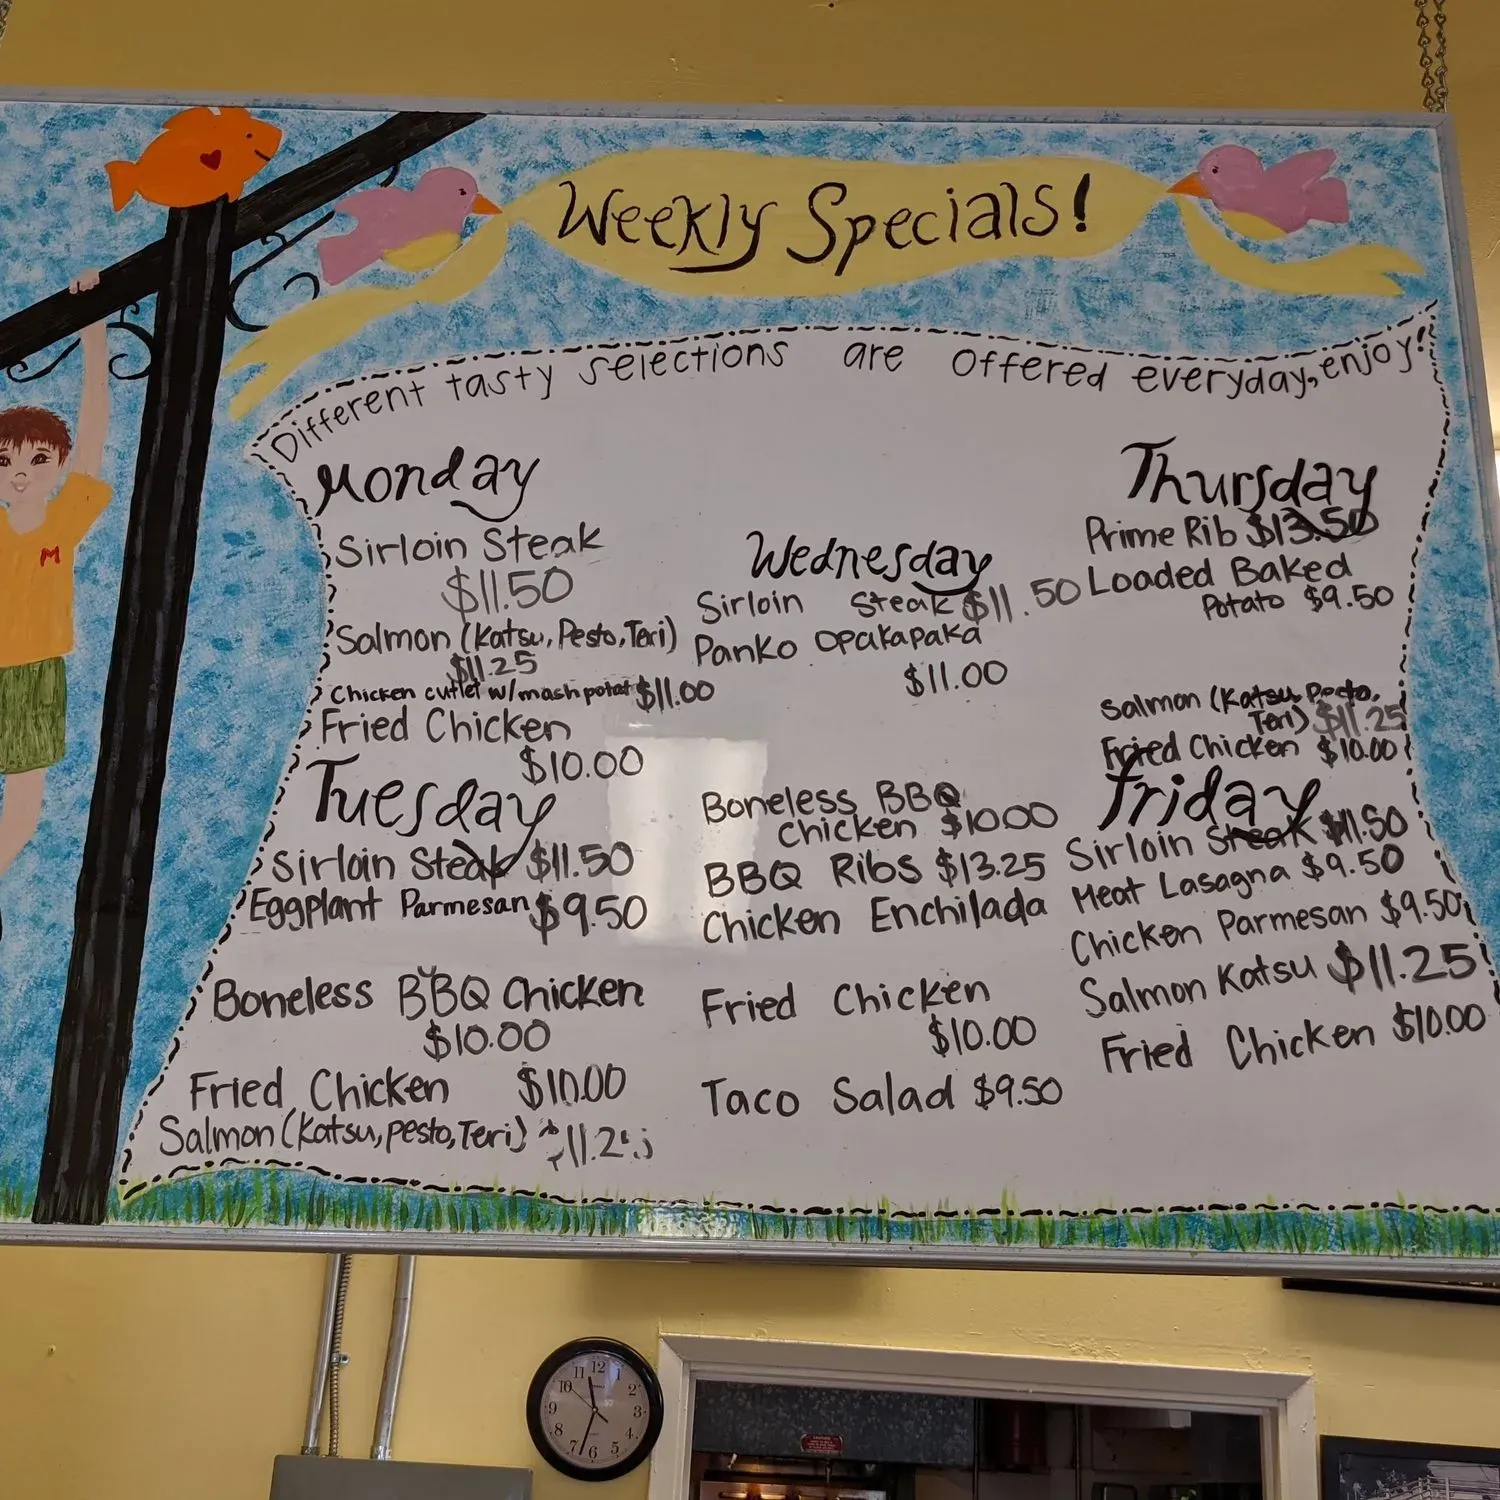 Weekly Specials!
Different tasty selections are offered everyday, enjoy!
Monday
Sirloin Steak
$11.50
Salmon (Katsu, Pesto, Teri)
$11.25
Chicken cutlet w/mash potat $11.00
Fried Chicken
$10.00
Tuesday
Sirloin Steak $11.50
Eggplant Parmesan $9.50
Boneless BBQ Chicken
$10.00
Fried Chicken $10.00
Salmon (Katsu, pesto, Teri) $11.25
Wednesday
Sirloin Steak $11.50
Panko Opakapaka
$11.00
Boneless BBQ
Chicken $10.00
BBQ Ribs $13.25
Chicken Enchilada
Fried Chicken
$10.00
Taco Salad $9.50
Thursday
Prime Rib $13.50
Loaded Baked
Potato $9.50
Salmon (Katsu, Pesto,
Teri) $11.25
Fried Chicken $10.00
Friday
Sirloin Steak $11.50
Meat Lasagna $9.50
Chicken Parmesan $9.50
Salmon Katsu $11.25
Fried Chicken $10.00
M
12
1
2
3
4
5
6
7
8
9
10
11